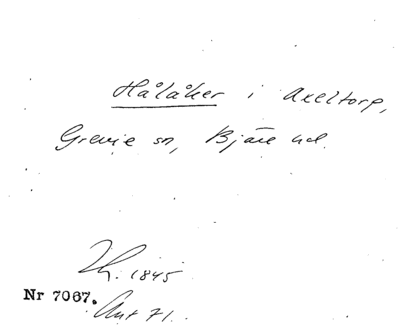 Hålåker i Axeltorp,
Grevie sn, Bjäre hd.
Lh. 1845
Nr 7067.
Ant 71.